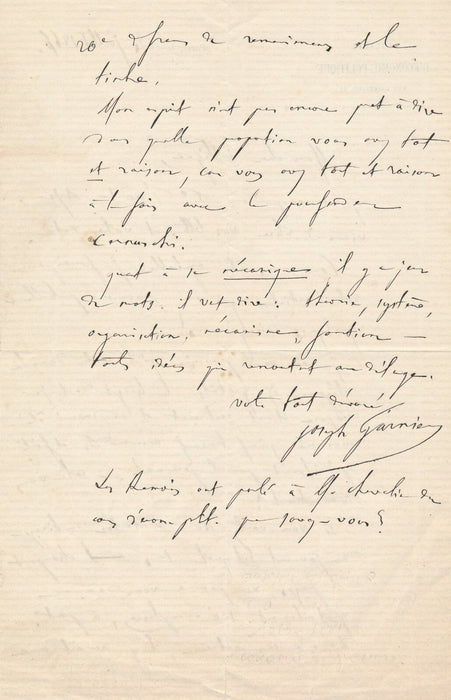 20e de frais de et le
timbre.
Mon esprit n'est pas encore prêt à dire
dans quelle proportion vous avez tort
et raison, car vous avez tort et raison
à la fois avec le professeur
Cernuschi.
quant à la mécanique, il y a jeu
de mots. il veut dire : théorie, système,
organisation, mécanisme, fonction —
touts idées qui remontent au déluge.
votre tout dévoué
Joseph Garnier
Les ont parlé à M. chevalier du
d'écon. polit. que savez-vous?